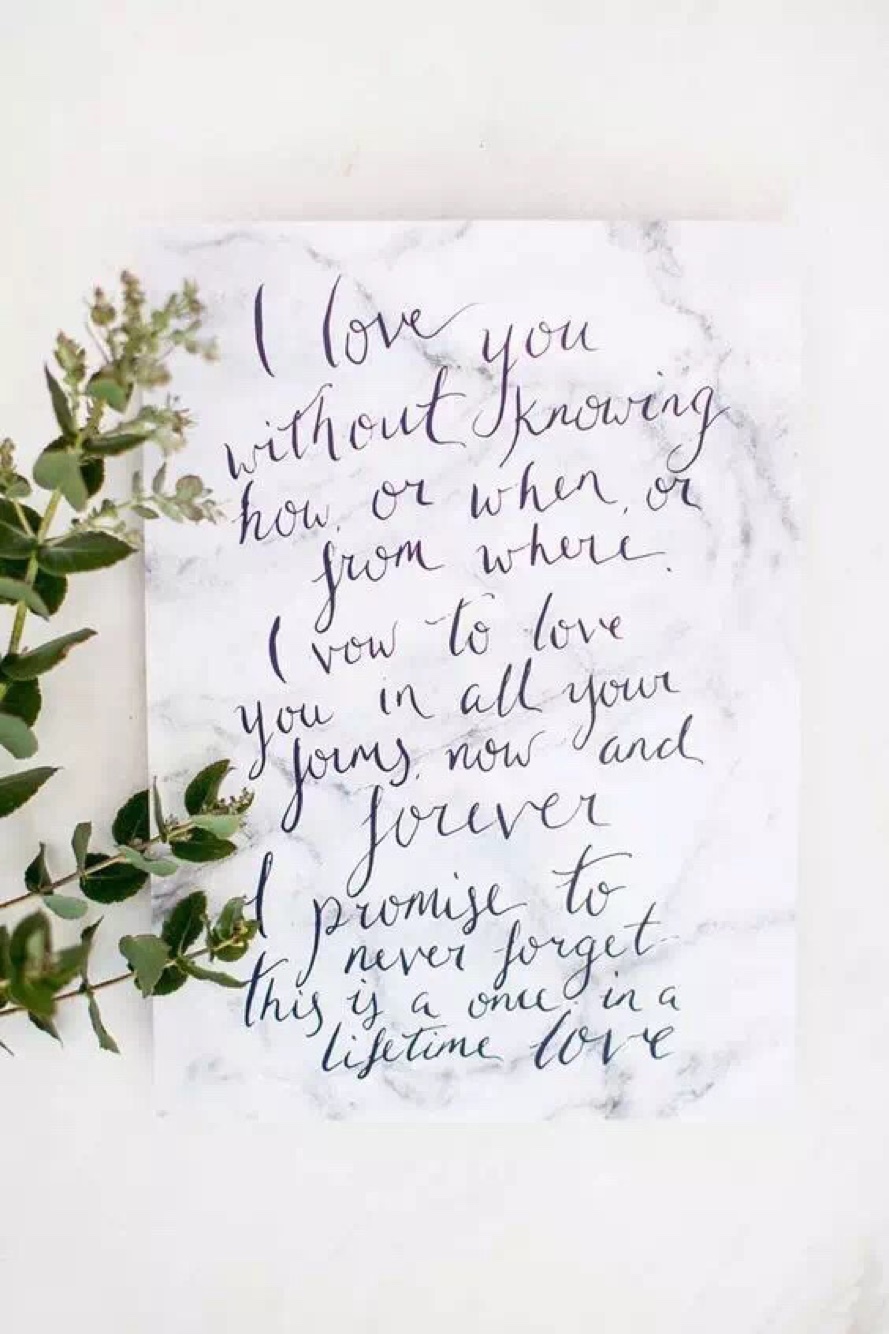 I love you
without knowing
how, or when, or
from where.
I vow to love
you in all your
forms, now and
forever
I promise to
never forget
this is a once in a
lifetime love